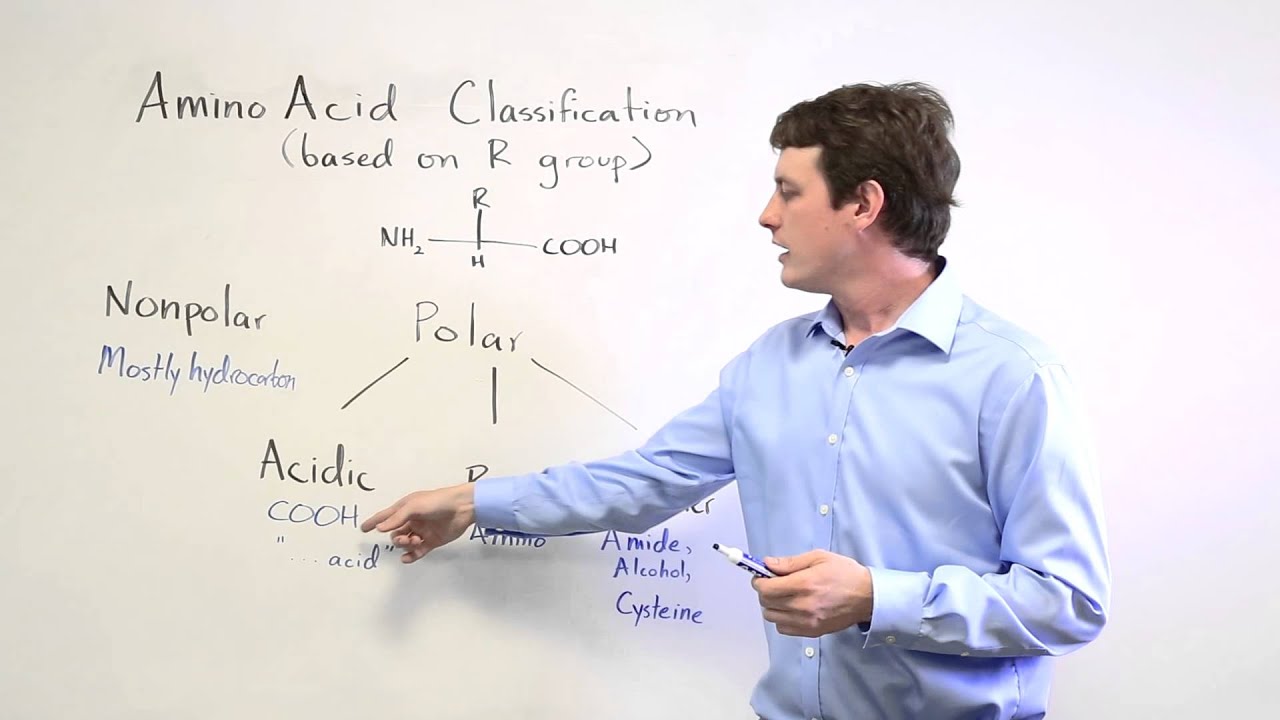 Amino Acid Classification
(based on R group)
R
NH₂ COOH
H
Nonpolar
Polar
Mostly hydrocarbon
Acidic
COOH
Amino
Amide,
"...acid"
Alcohol,
Cysteine